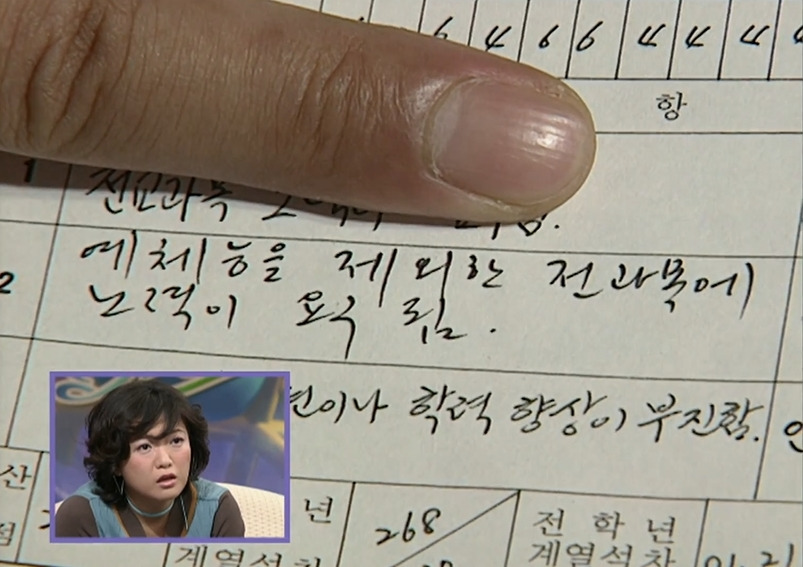 6 4 6 6 4 4 4 4
항
1
전교과목
2
예체능을 제외한 전과목에
노력이 요구됨.
학력 향상이 부진함.
년
268
전학년
계열석차
계열석차